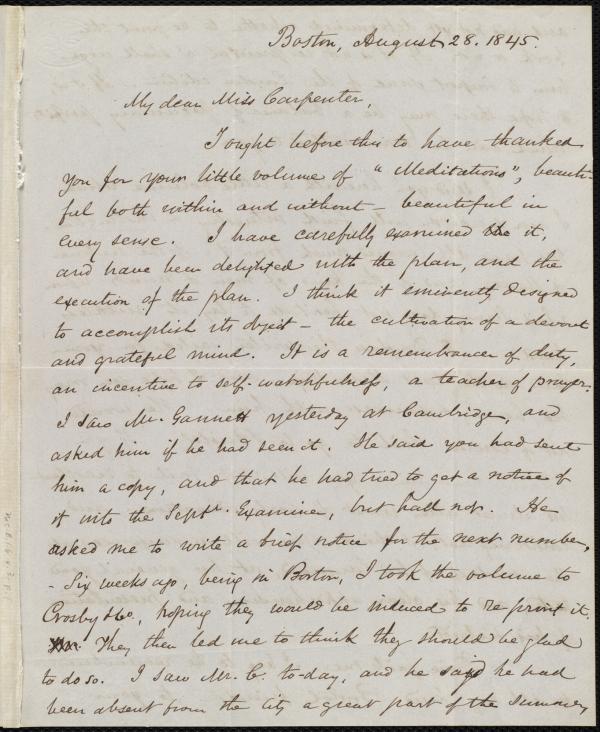 Boston, August 28. 1845.
My dear Miss Carpenter,
I ought before this to have thanked
you for your little volume of "Meditations", beauti-
ful both within and without - beautiful in
every sense. I have carefully examined it,
and have been delighted with the plan, and the
execution of the plan. I think it eminently designed
to accomplish its object - the cultivation of a devout
and grateful mind. It is a remembrancer of duty,
an incentive to self-watchfulness, a teacher of prayer.
I saw Mr. Gannett yesterday at Cambridge, and
asked him if he had seen it. He said you had sent
him a copy, and that he had tried to get a notice of
it into the Septr. Examiner, but had not. He
asked me to write a brief notice for the next number.
- Six weeks ago, being in Boston, I took the volume to
Crosby & Co, hoping they would be induced to reprint it.
They then led me to think they should be glad
to do so. I saw Mr. C. to-day, and he said he had
been absent from the city a great part of the summer,